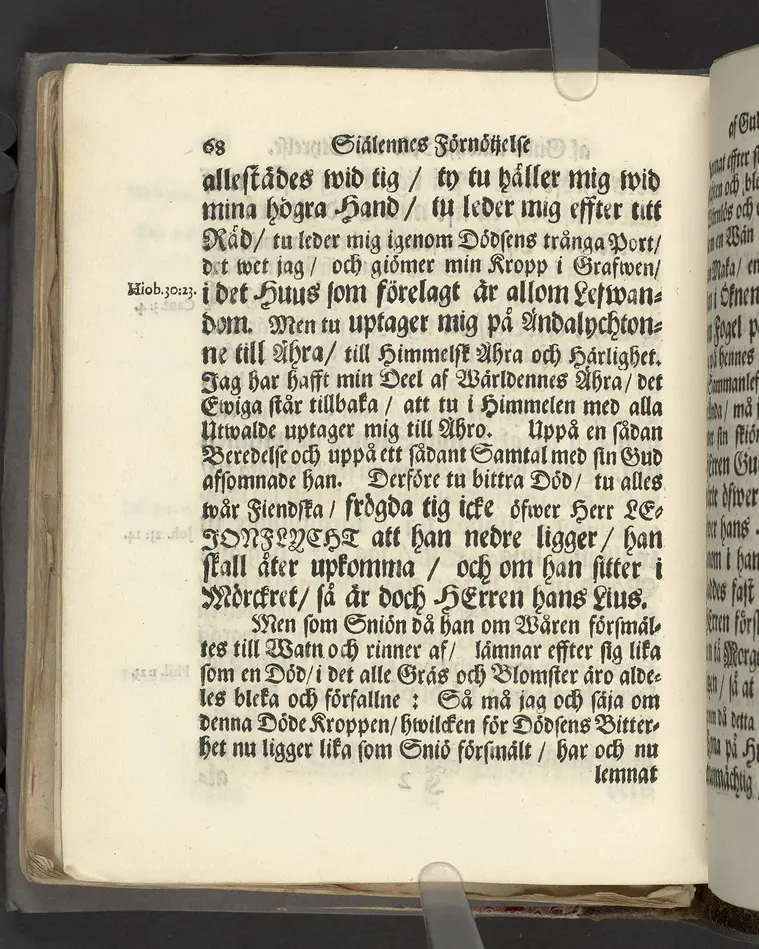 68 Siälennes Förnöijelse
allestädes wid tig / ty tu håller mig wid
mina högra Hand / tu leder mig effter titt
Råd / tu leder mig igenom Dödsens trånga Port /
det wet jag / och giömer min Kropp i Grafwen /
Hiob.30:23. i det Huus som förelagt är allom Lefwan-
dom. Men tu uptager mig på Ändalychton-
ne till Ähra / till Himmelsk Ähra och Härlighet.
Jag har hafft min Deel af Wärldennes Ähra / det
Ewiga står tillbaka / att tu i Himmelen med alla
Utwalde uptager mig till Ähro. Uppå en sådan
Beredelse och uppå ett sådant Samtal med sin Gud
afsomnade han. Derföre tu bittra Död / tu alles
wår Fiendska / frögda tig icke öfwer Herr LE-
JONFLYCHT att han nedre ligger / han
skall åter upkomma / och om han sitter i
Mörckret / så är doch HErren hans Lius.
Men som Sniön då han om Wåren försmäl-
tes till Watn och rinner af / lämnar effter sig lika
som en Död / i det alle Gräs och Blomster äro alde-
les bleka och förfallne : Så må jag och säja om
denna Döde Kroppen / hwilcken för Dödsens Bitter-
het nu ligger lika som Sniö försmält / har och nu
lemnat